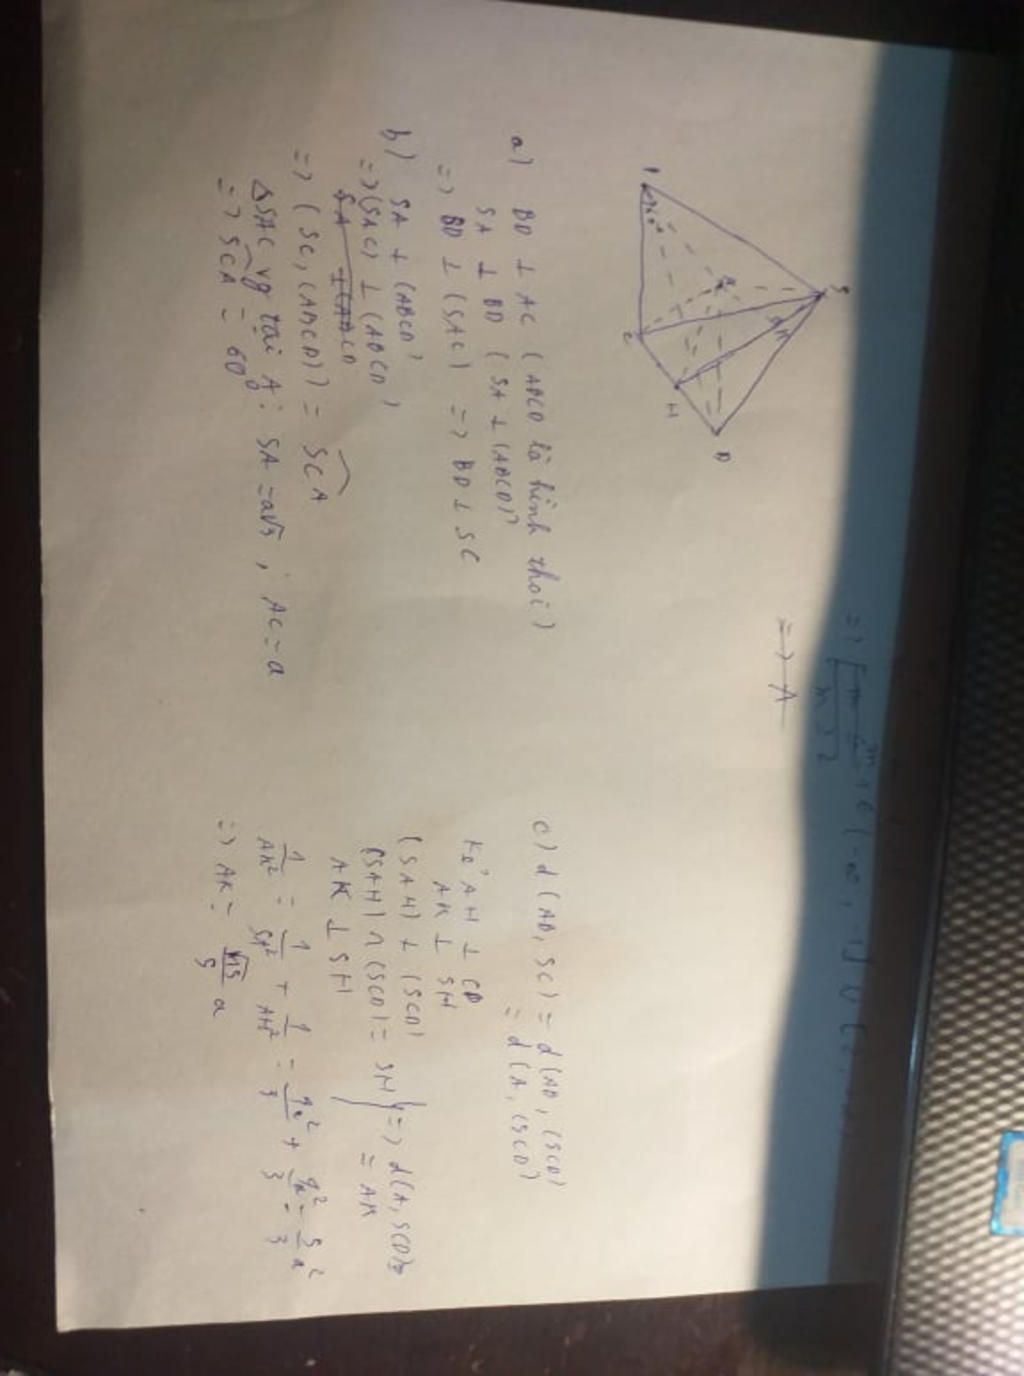 S
K
A
B
60°
C
H
D
a) BD ⊥ AC (ABCD là hình thoi)
SA ⊥ BD (SA ⊥ (ABCD))
=> BD ⊥ (SAC) => BD ⊥ SC
b) SA ⊥ (ABCD)
=> (SAC) ⊥ (ABCD)
SA ⊥ (ABCD
=> (SC, (ABCD)) = SCA
ΔSAC vg tại A: SA = a√3; AC = a
=> SCA = 60°
c) d(AB, SC) = d(AB, (SCD)
= d(A, (SCD)
Kẻ AH ⊥ CD
AK ⊥ SH
(SAH) ⊥ (SCD)
(SAH) ∩ (SCD) = SH } => d(A, SCD) =
AK ⊥ SH = AK
1/AK² = 1/SA² + 1/AH² =
=> AK = √15/5 a
=> A